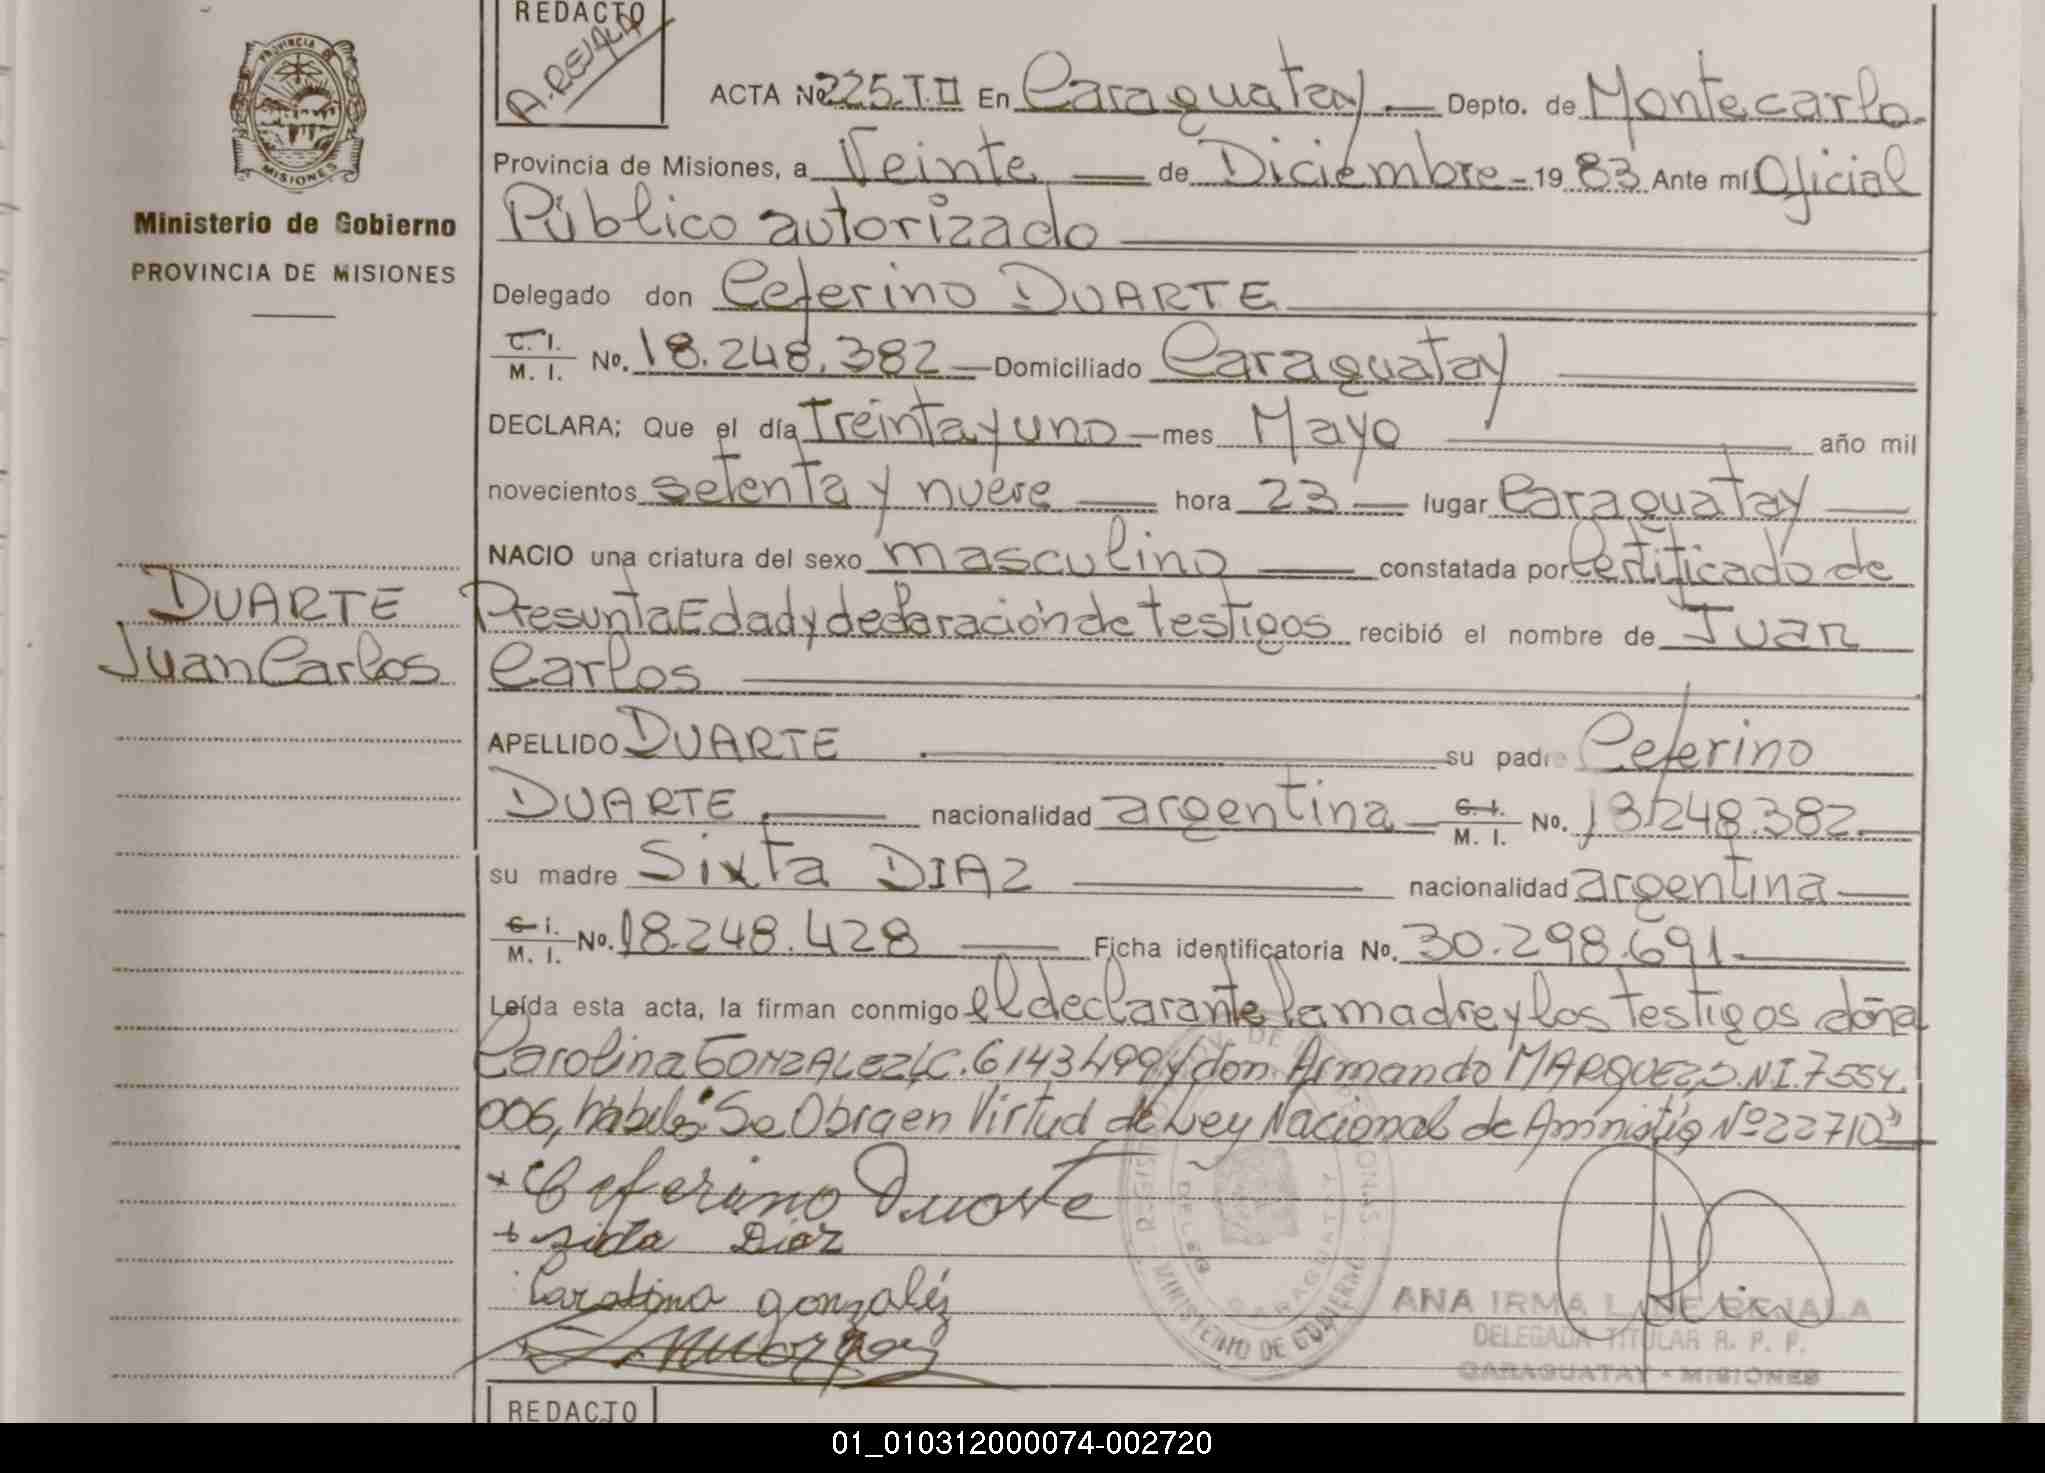 REDACTO
A. REJALA
PROVINCIA DE
MISIONES
Ministerio de Gobierno
PROVINCIA DE MISIONES
DUARTE
Juan Carlos
ACTA Nº 225.T.II En Caraguatay Depto. de Montecarlo.
Provincia de Misiones, a Veinte de Diciembre - 19 83 Ante mí Oficial
Público autorizado
Delegado don Ceferino DUARTE
C. I. / M. I. Nº. 18.248.382 Domiciliado Caraguatay
DECLARA; Que el día Treinta y uno mes Mayo año mil
novecientos setenta y nueve hora 23 lugar Caraguatay
NACIO una criatura del sexo masculino constatada por Certificado de
Presunta Edad y declaración de testigos recibió el nombre de Juan
Carlos
APELLIDO DUARTE su padre Ceferino
DUARTE nacionalidad argentina C. I. / M. I. Nº. 18.248.382
su madre Sixta DIAZ nacionalidad argentina
C. I. / M. I. Nº. 18.248.428 Ficha identificatoria Nº. 30.298.691
Leída esta acta, la firman conmigo el declarante la madre y los testigos doña
Carolina GONZALEZ L.C. 6143499 y don Armando MARQUEZ D.N.I. 7.554.
006, hábiles "Se Obra en Virtud de Ley Nacional de Amnistía Nº 22710"
Ceferino Duarte
Sixta Diaz
Carolina gonzalez
MINISTERIO DE GOBIERNO
CARAGUATAY
ANA IRMA REJALA
DELEGADA TITULAR R. P. P.
CARAGUATAY - MISIONES
REDACTO
01_010312000074-002720